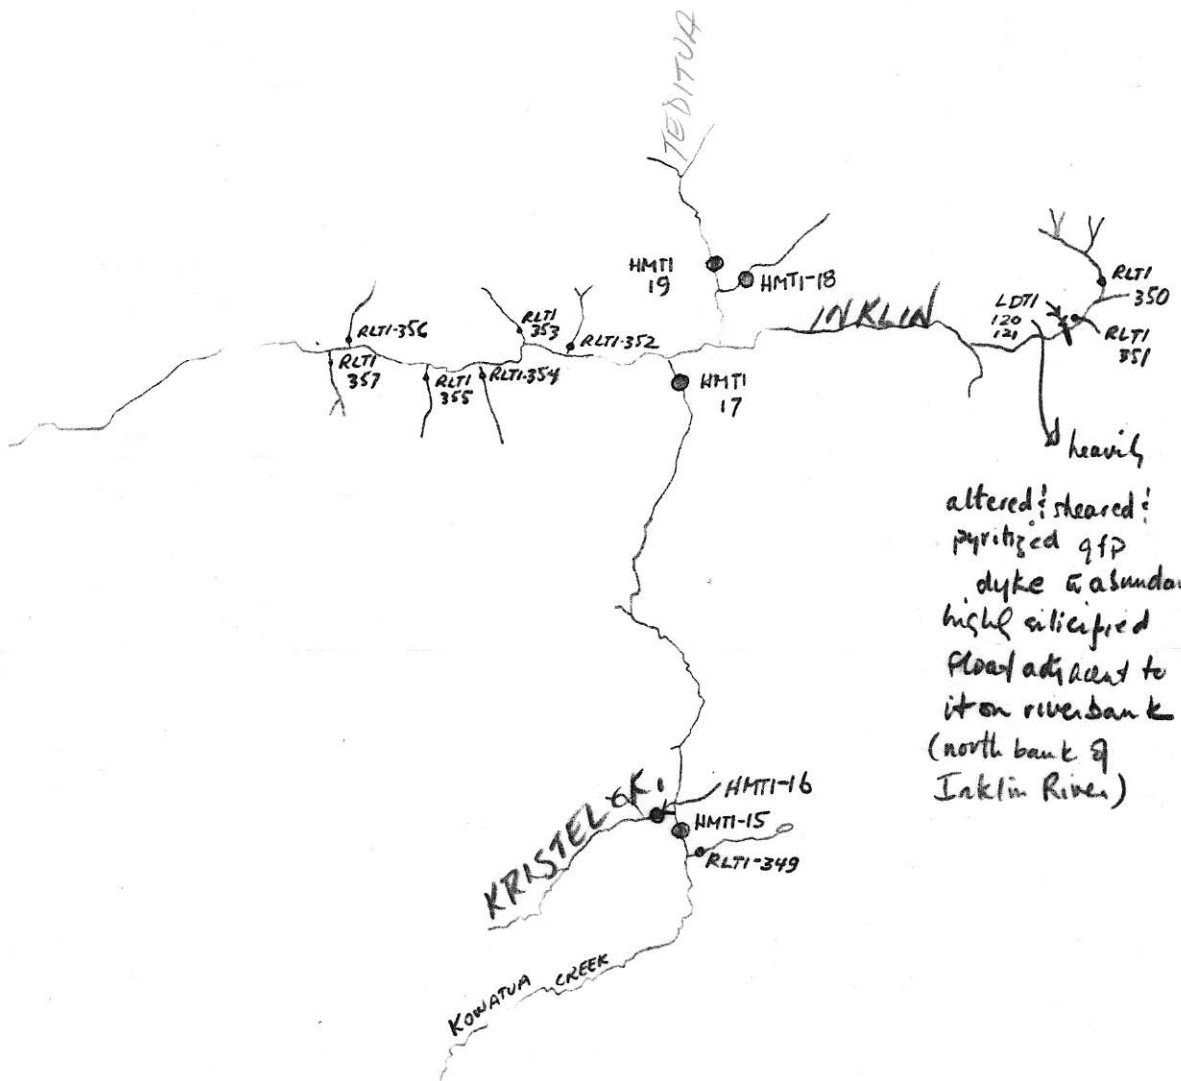 TEDITUA
HMT1
19
HMT1-18
INKLIN
RLT1
350
LDT1
120
121
RLT1
351
RLT1-356
RLT1
353
RLT1-352
RLT1
357
RLT1
355
RLT1-354
HMT1
17
heavily
altered & sheared &
pyritized qfp
dyke c̄ abundan
highly silicified
float adjacent to
it on riverbank
(north bank of
Inklin River)
HMT1-16
KRISTEL CK.
HMT1-15
RLT1-349
KOWATUA CREEK